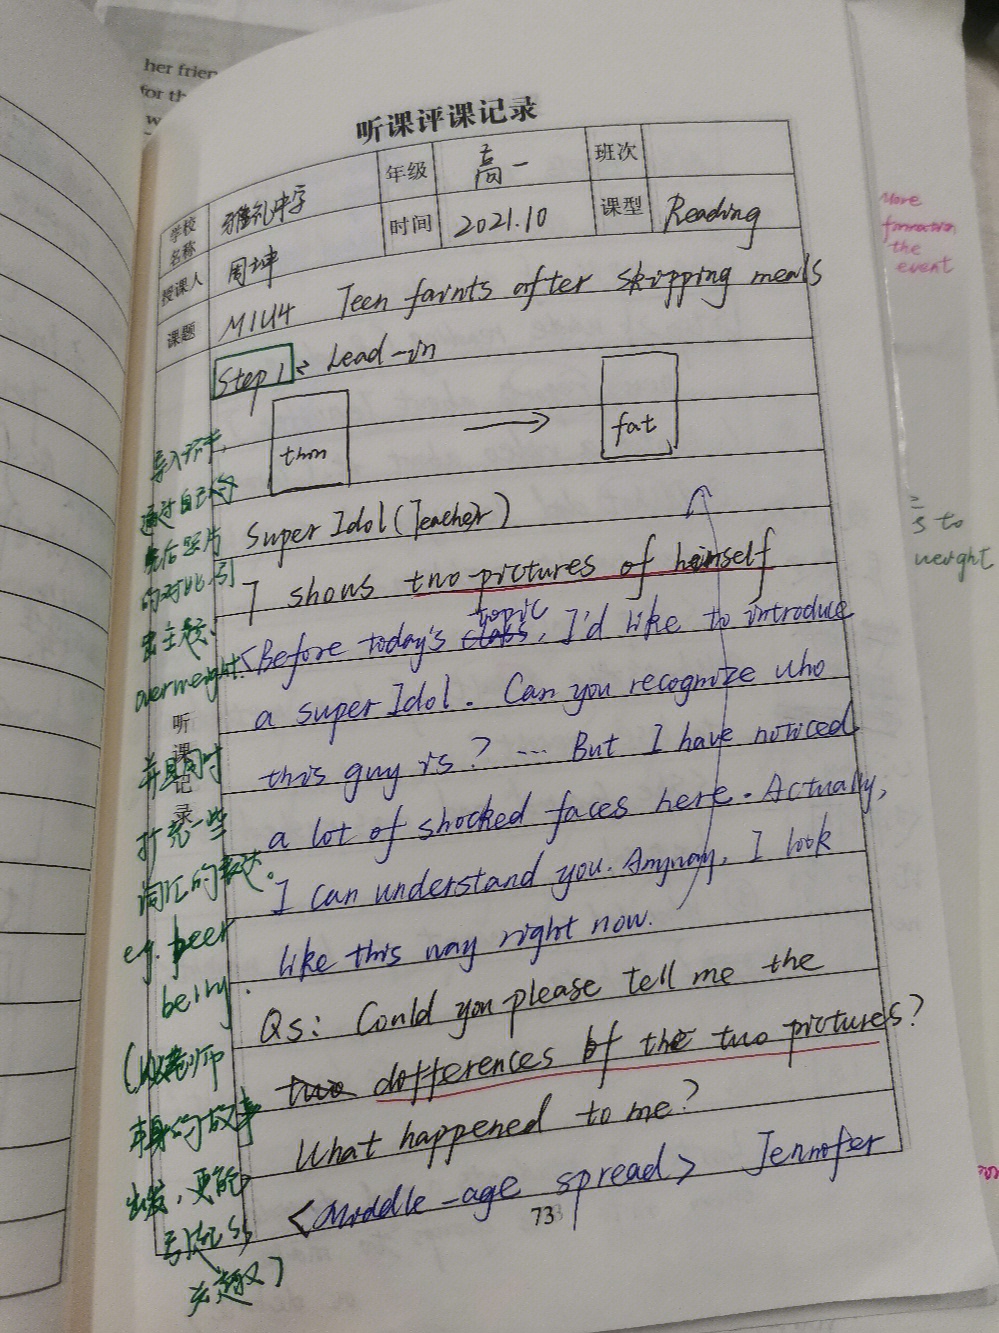 her frien
for th
w
听课评课记录
学校名称 雅礼中学 年级 高一 班次
授课人 周坤 时间 2021.10 课型 Reading
课题 M1U4 Teen faints after skipping meals
Step 1: Lead-in
thin → fat
Super Idol (Teacher)
T shows two pictures of himself
<Before today's class topic, I'd like to introduce
a super Idol. Can you recognize who
this guy is? ... But I have noticed
a lot of shocked faces here. Actually,
I can understand you. Anyway, I look
like this way right now.
Qs: Could you please tell me the
two differences of the two pictures?
What happened to me?
<Middle-age spread> Jennifer
73
听课记录
导入环节,
通过自己的
先后照片
的对比引
出主题:
overweight.
并且同时
扩充一些
词汇的表达。
eg. beer
belly.
(从老师
本身的故事
出发,更能
引起Ss
兴趣)
More
the
event
to
weight